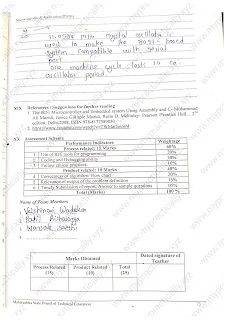 11.0592 MHz crystal oscillator is
used to make the 8051 based
system compatible with serial
port
one machine cycle lasts 12
oscillator period
XIX References / Suggestions for further reading
1. The 8051 Microcontroller and Embedded system Using Assembly and C- Mohammad
Ali Mazidi, Janice Gillispie Mazidi, Rolin D. McKinlay- Pearson /Prentice Hall , 2nd
edition, Delhi, 2008,
XX Assessment Scheme
Performance Indicators Weightage
Process related: 15 Marks 60%
1 Use of IDE tools for programming 20%
2 Coding and Debugging ability 30%
3 Follow ethical practices 10%
Product related: 10 Marks 40%
4 Correctness of algorithm/ Flow chart 20%
5 Relevance of output of the problem definition 15%
6 Timely Submission of report, Answer to sample questions 05%
Total (Marks) 100 %
Name of Team Members
Vaishnavi
Patil
Marks Obtained Dated signature of Teacher
Process Related (15) Product Related (10) Total (25)
Maharashtra State Board of Technical Education